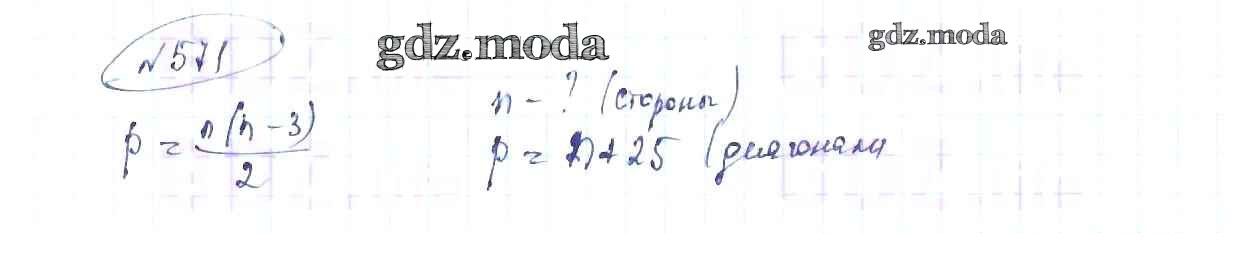 №571
gdz.moda
gdz.moda
p = n(n-3)/2
n - ? (стороны)
p = n + 25 (диагонали